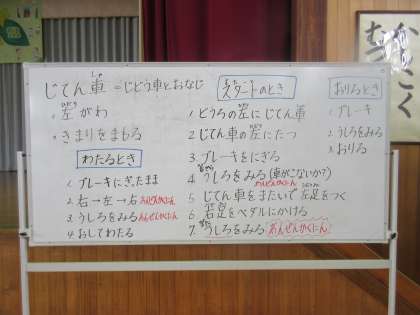 じてん車=じどう車とおなじ
1. 左がわ
2. きまりをまもる
わたるとき
1. ブレーキにぎったまま
2. 右→左→右 あんぜんかくにん
3. うしろをみる あんぜんかくにん
4. おしてわたる
スタートのとき
1. どうろの左にじてん車
2. じてん車の左にたつ
3. ブレーキをにぎる
4. うしろをみる(車がこないか?)
あんぜんかくにん
5. じてん車をまたいで左足をつく
6. 右足をペダルにかける
7. うしろをみる あんぜんかくにん
おりるとき
1. ブレーキ
2. うしろをみる
3. おりる